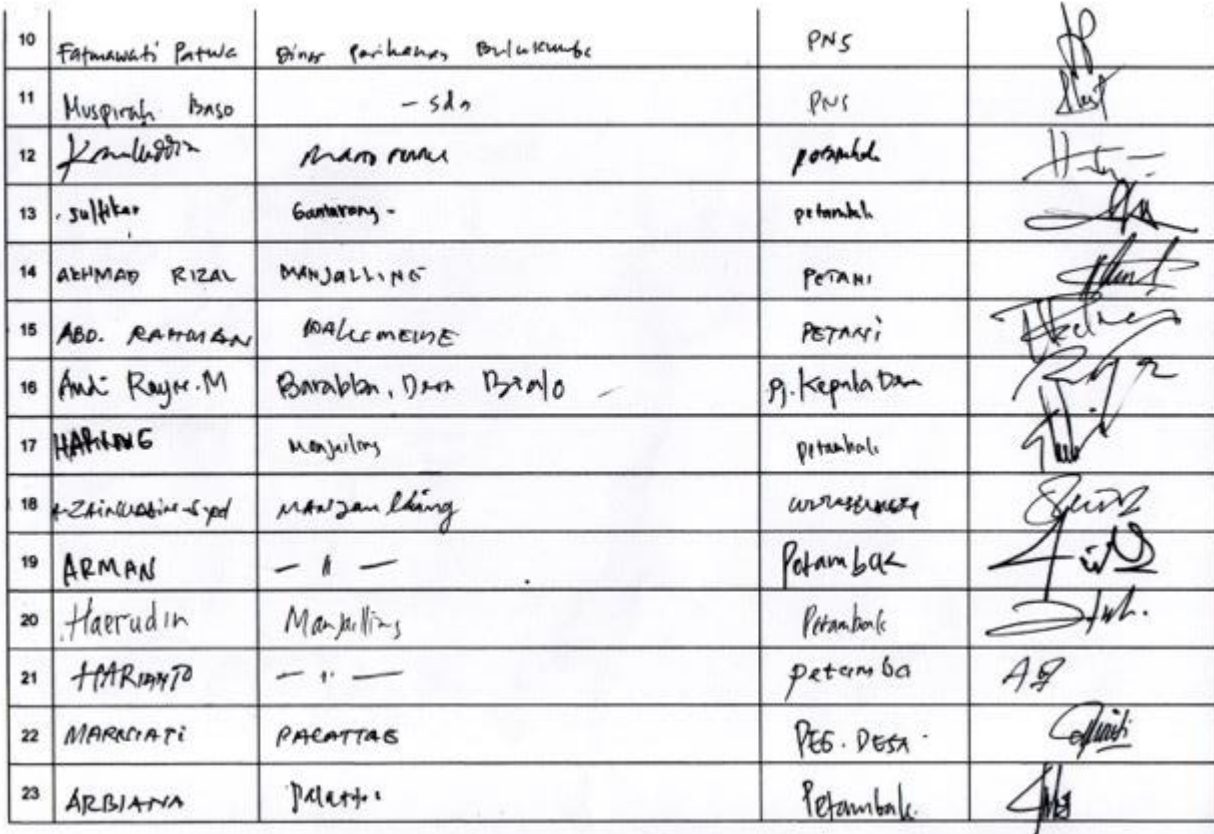 10 Fatmawati Patwa Dinas Perikanan Bulukumba PNS
11 Muspirah Baso - sda PNS
12 Kamaluddin petambak
13 Sulfikar Gantarang - petambak
14 AKHMAD RIZAL MANJALLING PETANI
15 ABD. RAHMAN PETANI
16 Andi Rayn.M Barabba, Desa Bialo Pj. Kepala Desa
17 Manjalling petambak
18 Manjalling WIRASWASTA
19 ARMAN - " - Petambak
20 Haerudin Manjalling Petambak
21 HARIANTO - " - petamba
22 MARNIATI PALATTAE PEG. DESA
23 ARBIANA Palattae Petambak